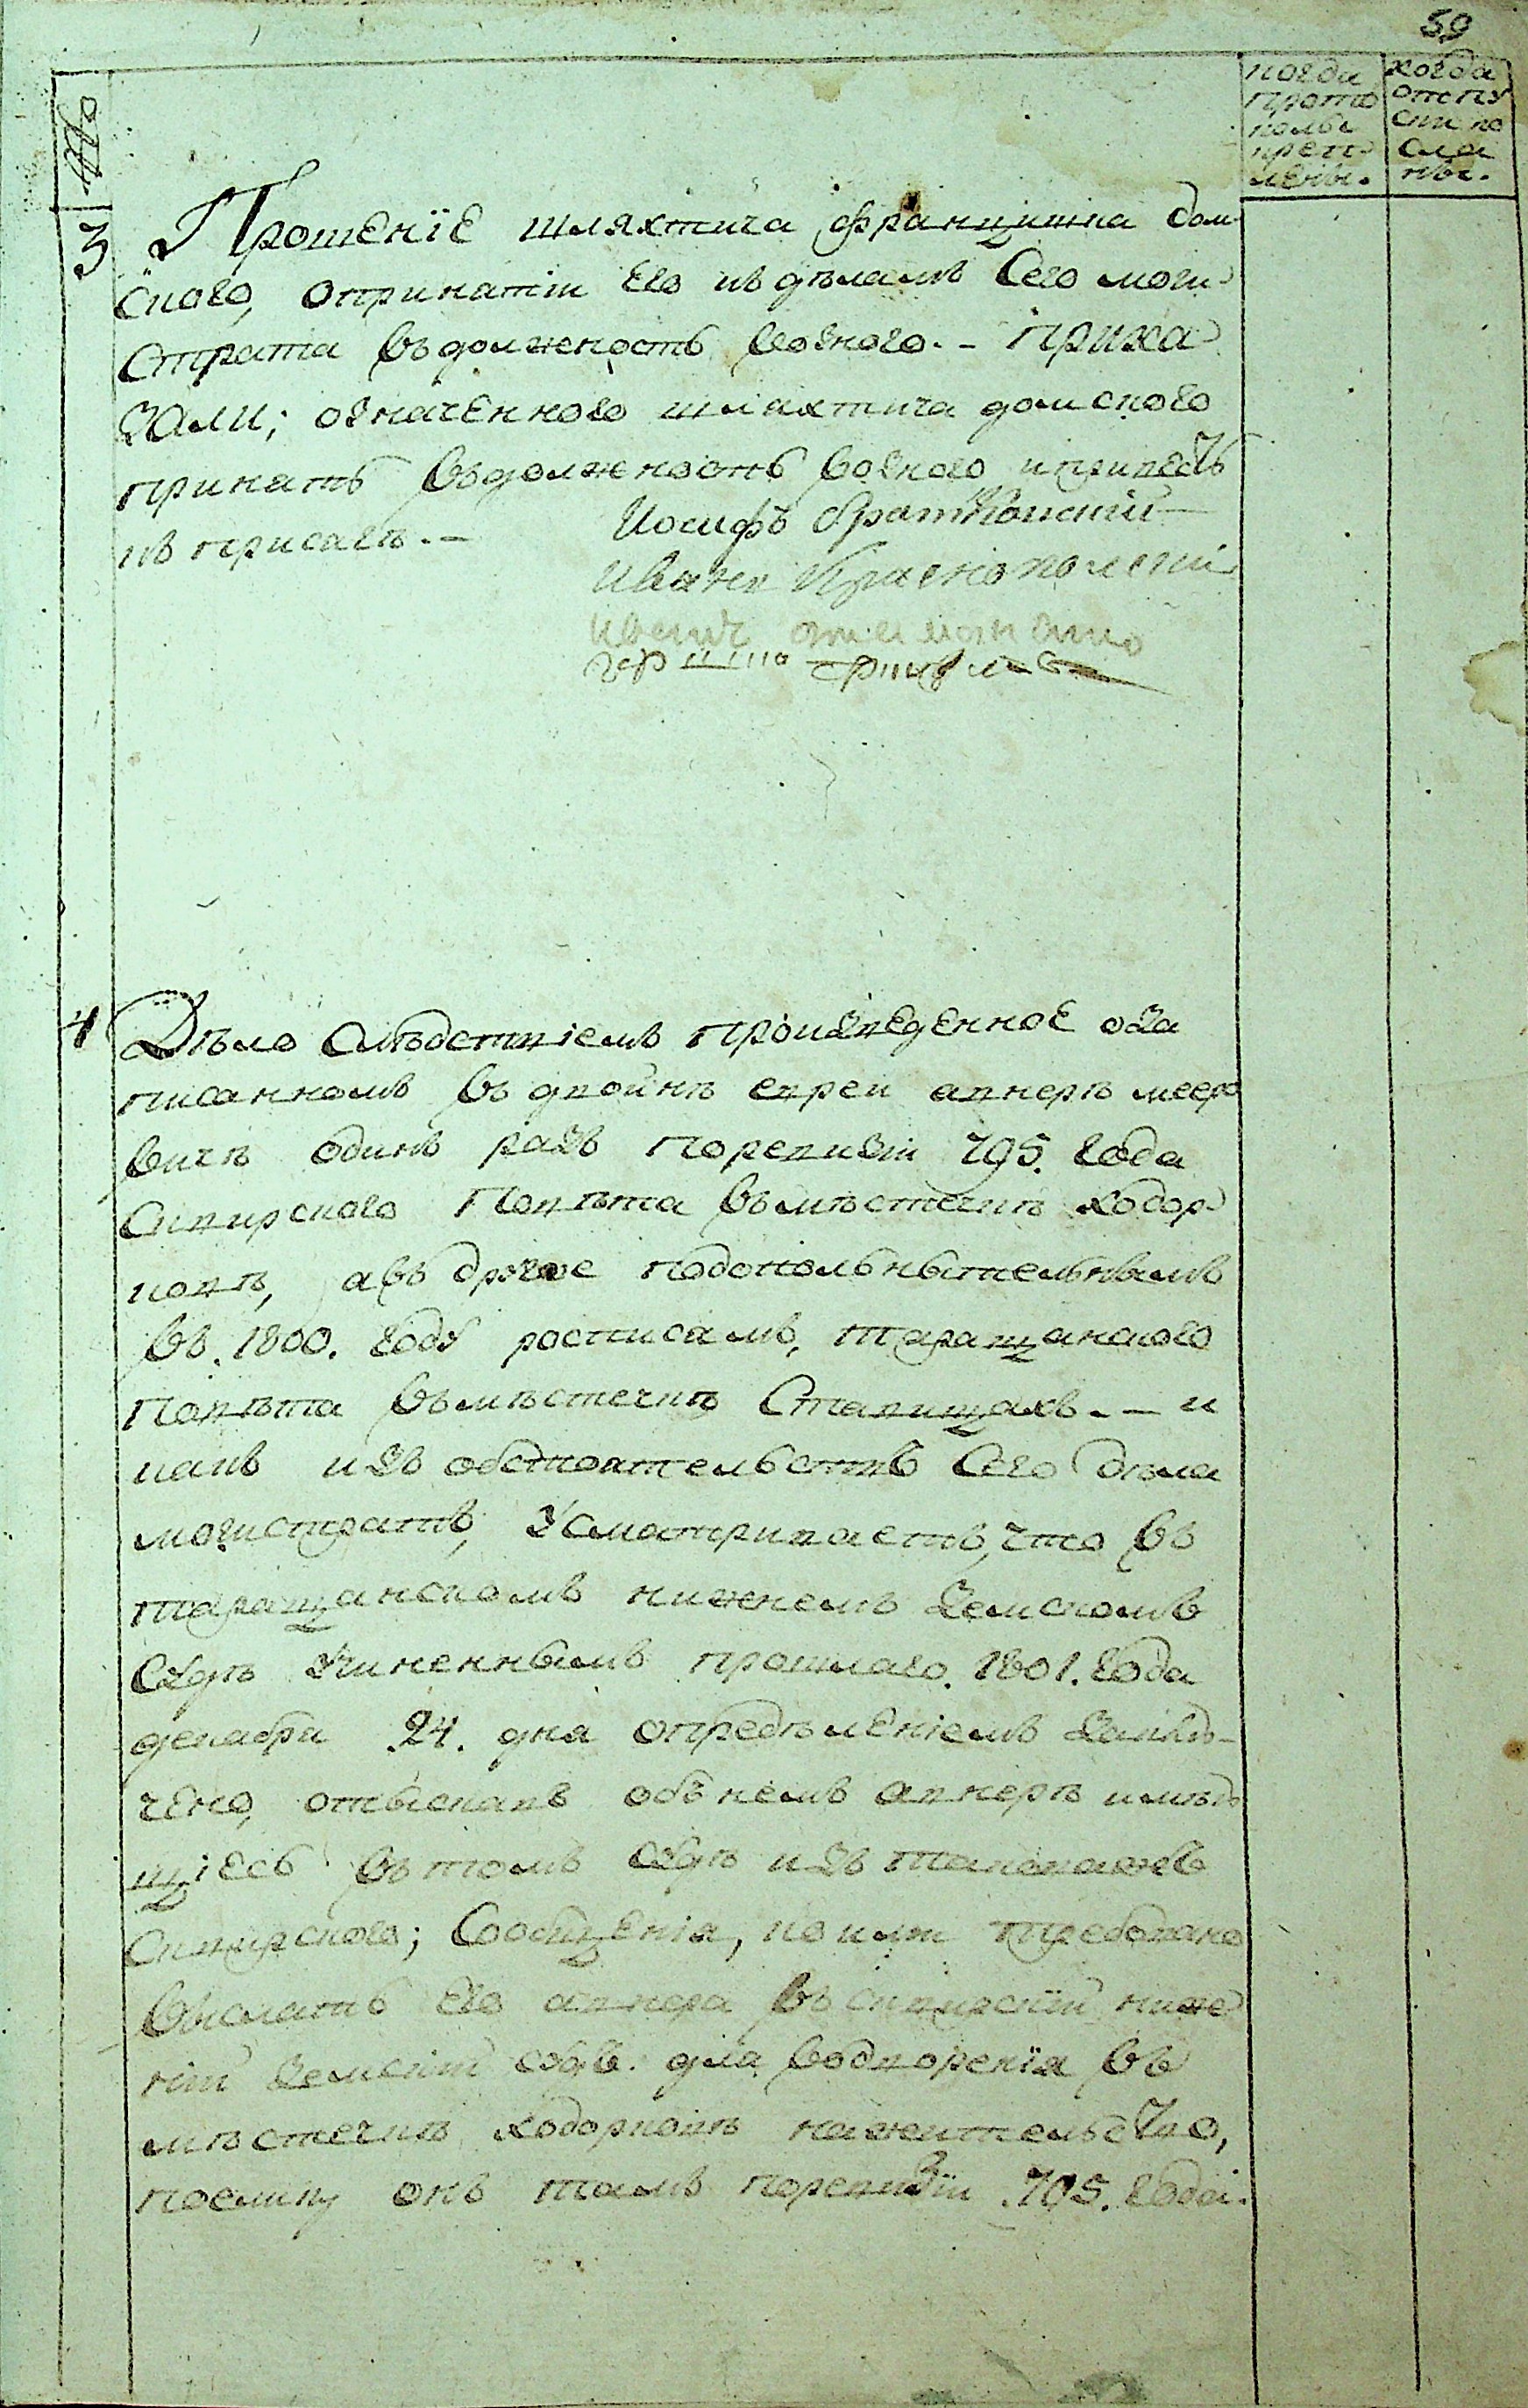 59
когда
прото
колы
креп
лены.
когда
отпу
ски по
сла
ны.
№
3 Прошенїе шляхтича францишка дом
ского, опринатіи Его къ дѣламъ Сего маги
страта въдолжность возного. - Прика
зали; означенного шляхтича домского
принать въдолжность возного ипривесть
къ присягѣ. -
Иосифъ
Иванъ Краснопольскій
4 Дѣло Слѣдствіемъ произведенное оза
писанномъ въ двойнѣ евреи авнерѣ мееро
вичѣ одинъ разъ поревизіи 795. года
Сквирского Повѣта въмѣстечкѣ ходор
ковѣ, авъ другое подополнытельнымъ
въ. 1800. году росписамъ, таращанского
Повѣта въмѣстечкѣ Ставищахъ. - и
какъ изъ обстоятельствъ Сего дѣла
магистратъ, Усматриваетъ, что въ
таращанскомъ нижнемъ Земскомъ
Судѣ Учиненнымъ прошлаго. 1801. года
декабря 24. дня опредѣленіемъ Заклю-
чено, отыскавъ объ немъ авнерѣ имѣю
щіесь въ томъ Судѣ изъ таковагожъ
Сквирского; Сообщенія, коими требовано
выслать Его авнера въ сквирскїй ниже
нїй Земскїй судъ. для водворенїя въ
мѣстечкѣ ходорковѣ нажительство,
поелику онъ тамъ поревизїи .795. года.